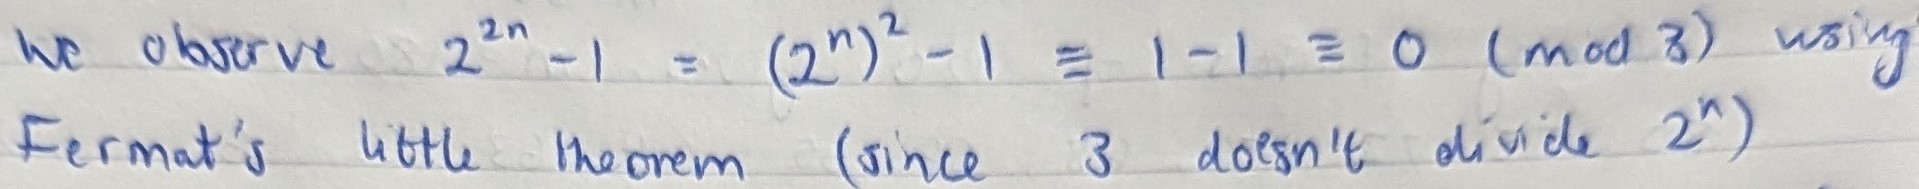 We observe 2^{2n} - 1 = (2^n)^2 - 1 ≡ 1 - 1 ≡ 0 (mod 3) using
Fermat's little theorem (since 3 doesn't divide 2^n)